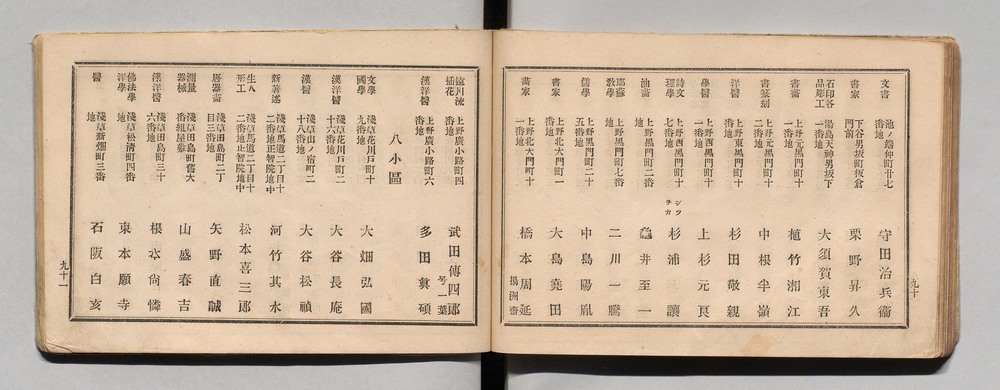 九十
文書 池ノ端仲町廿七番地 守田治兵衞
書家 下谷男坂町坂倉門前 栗野昇久
石印谷品彫工 湯島天神男坂下一番地 大須賀東吾
書畫 上野元黒門町十一番地 植竹湘江
書篆刻 上野元黒門町十二番地 中根半嶺
洋醫 上野東黒門町十番地 杉田敬親
學醫 上野西黒門町十一番地 上杉元良
詩文理學 上野西黒門町十七番地 杉浦 讓
油畫 上野黒門町二番地 龜井至一
耶蘇教學 上野黒門町七番地 二川一騰
儒學 上野廣小路町二十番地 中島陽胤
書家 上野北大門町一五番地 大島堯田
畫家 上野北大門町十一番地 橋本周延 楊洲齋
遠川流插花 上野廣小路町四番地 武田傳四郎 号一葉
漢洋醫 上野廣小路町六番地 多田貟碩
八小區
文學國學 淺草花川戸町十九番地 大畑弘國
漢洋醫 淺草花川戸町二十六番地 大谷長庵
漢醫 淺草山ノ宿町二十八番地 大谷松禎
新著述 淺草馬道二丁目十二番地正智院地中 河竹其水
生人形工 淺草馬道二丁目十二番地正智院地中 松本喜三郎
唐器畵 淺草田島町二丁目三番地 矢野直誠
測量器械 淺草田島町舊大番組屋敷 山盛春吉
漢洋醫 淺草田島町三十六番地 根本尚憐
佛法學洋學 淺草松清町四番地 東本願寺
醫 淺草新畑町三番地 石阪白亥
九十一